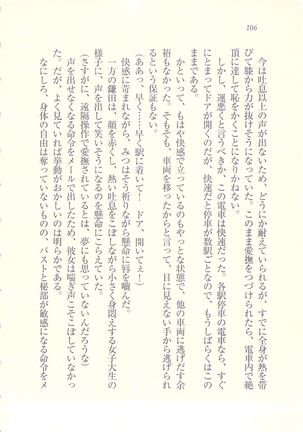 106
今は吐息以上の声が出ないため、どうにか耐えていられるが、すでに全身が熱を帯
びて膝から力が抜けそうになっていた。このまま愛撫をつづけられたら、電車内で絶
頂に達して恥をかくことになりかねない。
しかし、運悪くと言うべきか、この電車は快速だった。各駅停車の電車なら、すぐ
にとまってドアが開くのだが、快速だと停車が数駅ごとなので、もうしばらくはこの
ままである。
かといって、もはや快感で立っているのもやっとな状態で、他の車両に逃げだす余
裕もなかった。そもそも、車両を移ったからと言って、目に見えない手から逃げられ
るという保証もない。
（ああっ、早く……早く駅に着いて……ドア、開いてぇ！）
快感に苛まれながら、みつはそう祈りながら懸命に唇を噛んだ。
一方の鎌田は、顔を赤くし、熱い吐息をこぼしながら小さく身悶えする女子大生の
様子に、声を出して笑いそうになるのを懸命にこらえていた。
（さすがに、遠隔操作で愛撫されているとは、夢にも思っていないんだろうな）
声を出せなくなる命令をメールで出したため、彼女は喘ぎ声こそこぼしていなかっ
た。だが、よく見ていれば挙動がおかしいのは明らかである。
なにしろ、身体の自由は奪っていないものの、バストと秘部が敏感になる命令をメ